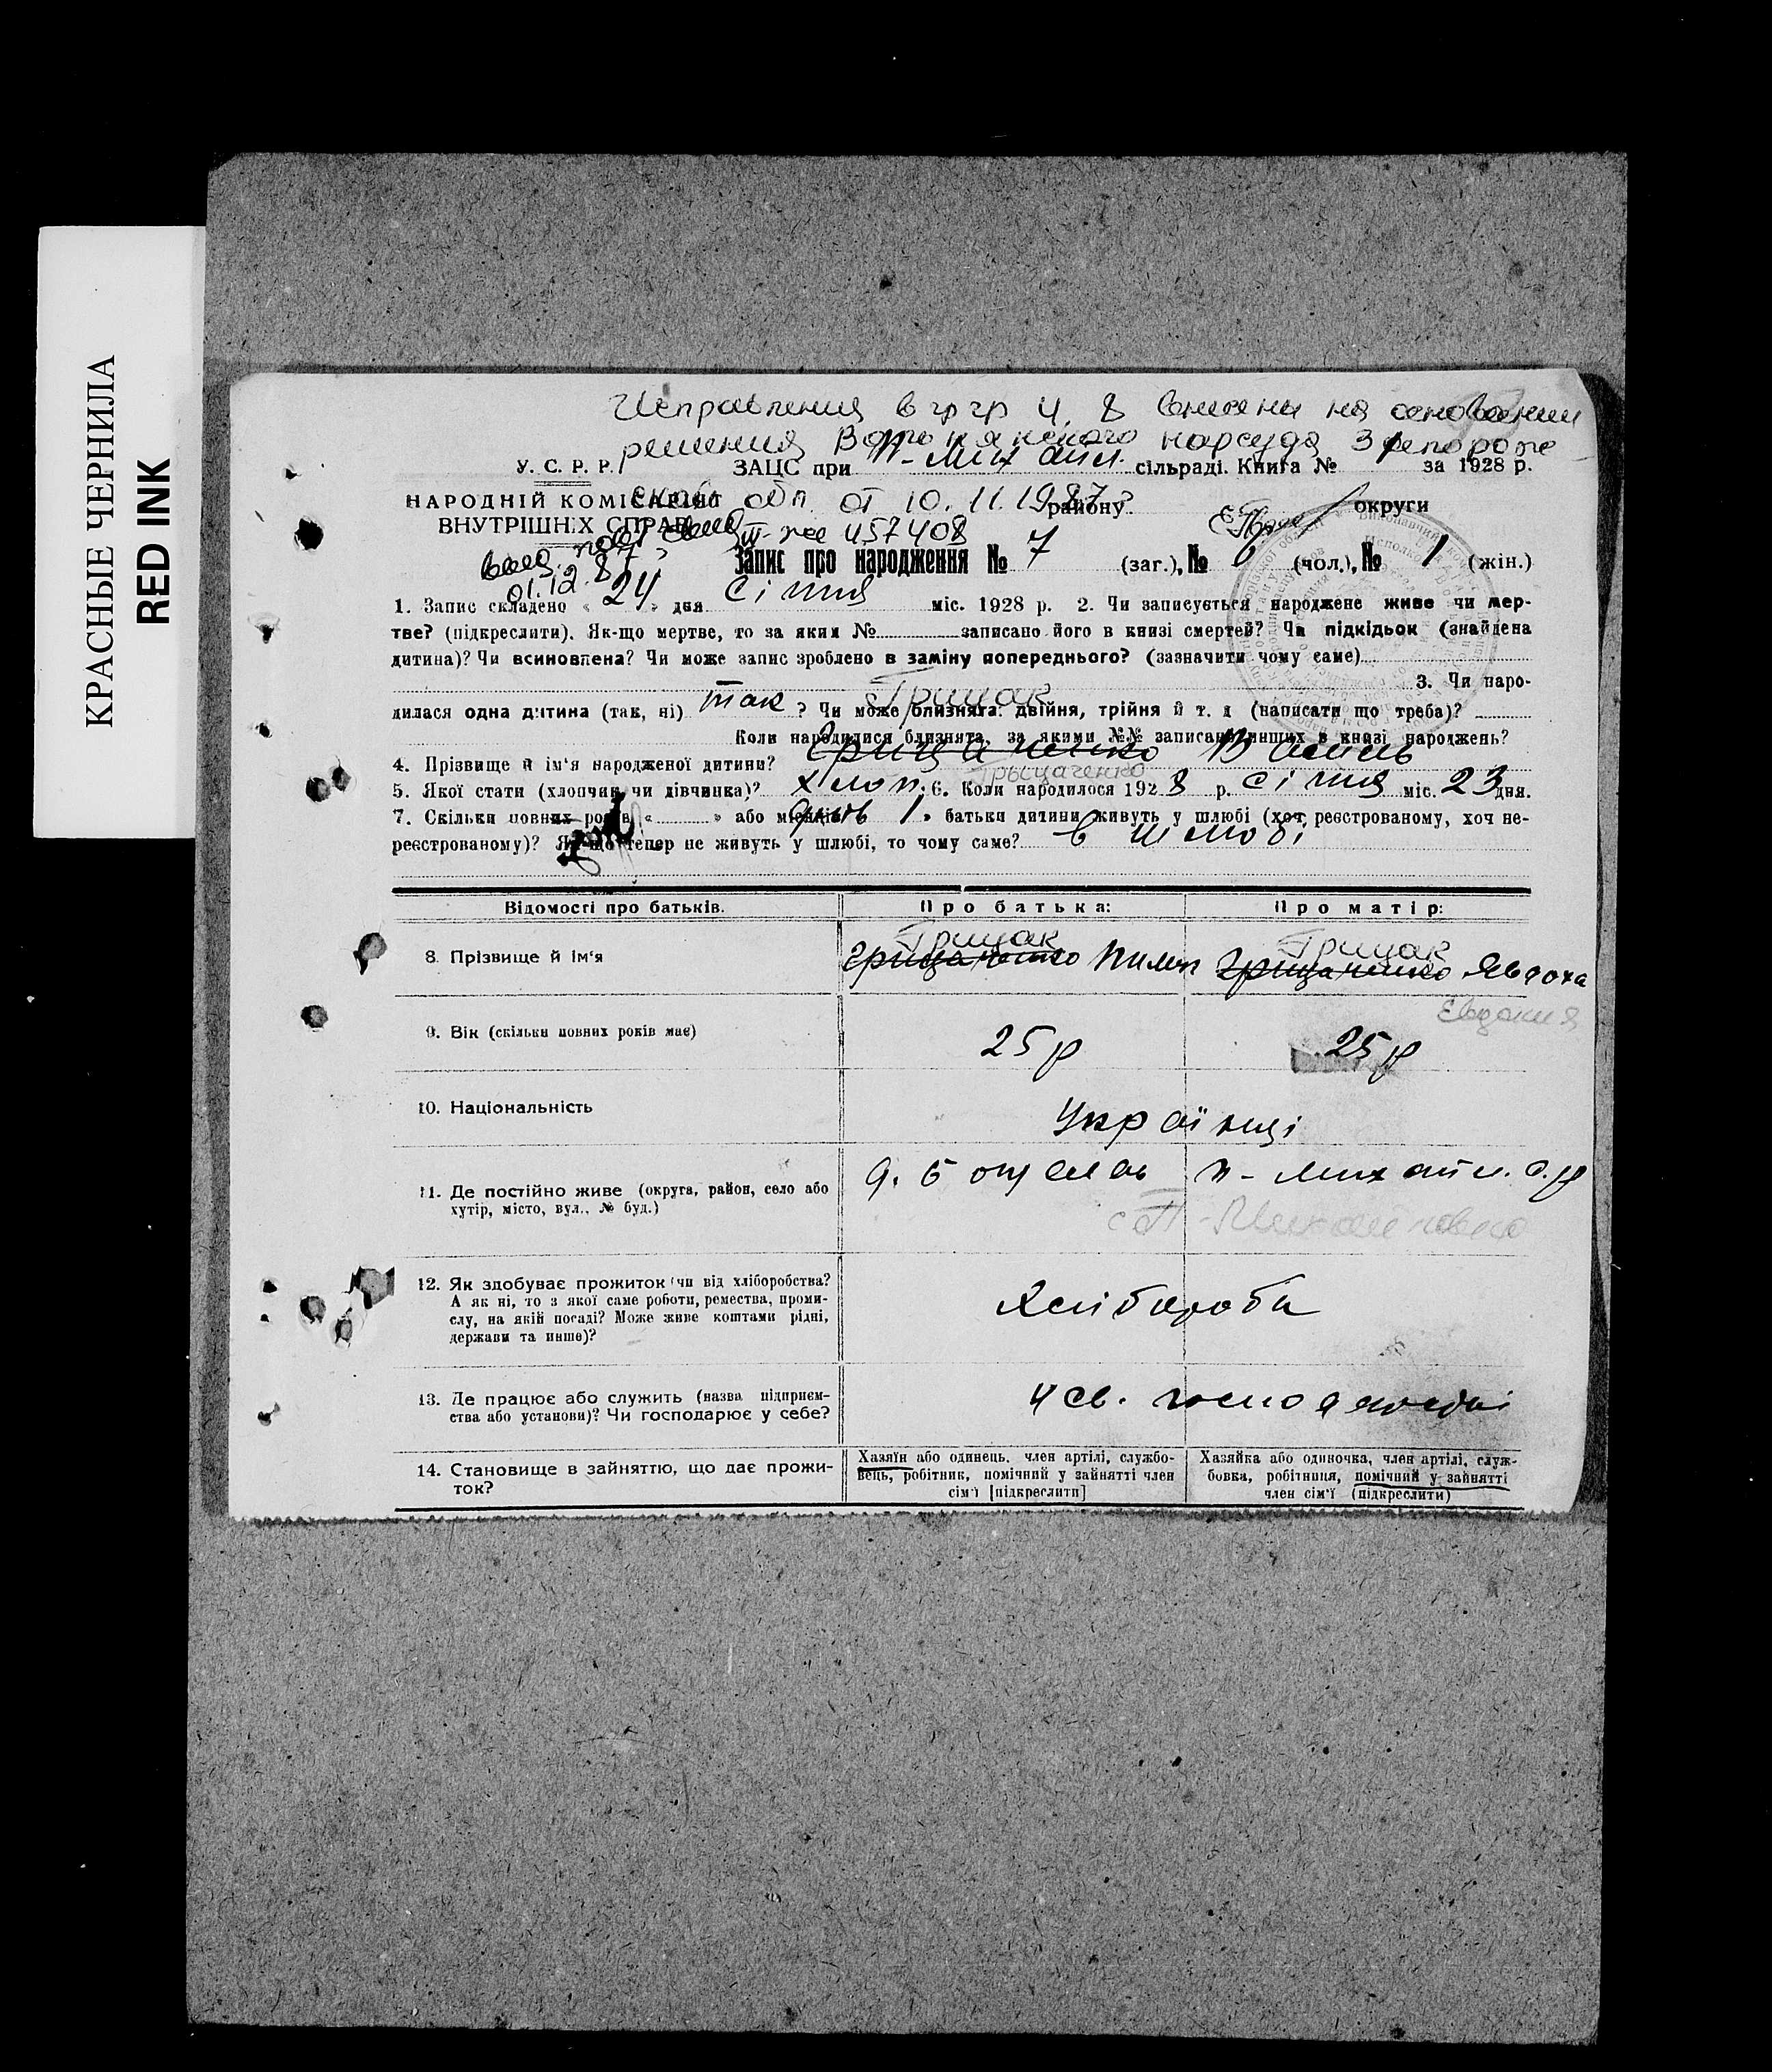 КРАСНЫЕ ЧЕРНИЛА
RED INK
Исправления в гр гр 4, 8 внесены на основании
решения нарсуда Запорож
У. С. Р. Р. ЗАЦС при П-Михайл. сільраді. Книга № 1 за 1928 р.
НАРОДНІЙ КОМІСАРІЯТ ской обл. от 10.11.1987 району округи
ВНУТРІШНІХ СПРАВ 457408
01.12.87
Запис про народження № 7 (заг.), № 6 (чол.), № 1 (жін.)
1. Запис складено « 24 » дня січня міс. 1928 р. 2. Чи записується народжене живе чи мер-
тве? (підкреслити). Як-що мертве, то за яким № записано його в книзі смертей? Чи підкідьок (знайдена
дитина)? Чи всиновлена? Чи може запис зроблено в заміну попереднього? (зазначити чому саме)
3. Чи наро-
дилася одна дитина (так, ні) так ? Чи може близнята: двійня, трійня й т. д (написати що треба)?
Грицак
Коли народилися близнята, за якими №№ записано инших в книзі народжень?
4. Прізвище й ім'я народженої дитини? Грицаченко Василь
Грыцаченко
5. Якої стати (хлопчик чи дівчинка)? хлоп. 6. Коли народилося 1928 р. січня міс. 23 дня.
7. Скільки повних років « » або місяців день 1 » батьки дитини живуть у шлюбі (хоч реєстрованому, хоч не-
реєстрованому)? Як-що тепер не живуть у шлюбі, то чому саме? в шлюбі
Відомості про батьків. Про батька: Про матір:
Грицак Грицак
8. Прізвище й ім'я Грицаченко Пилип Грицаченко Явдоха
Евдокия
9. Вік (скільки повних років має) 25 р 25 р
10. Національність Українці
11. Де постійно живе (округа, район, село або П-Михайл. с.р
хутір, місто, вул., № буд.) с П-Михайловка
12. Як здобуває прожиток (чи від хліборобства? Хлібороби
А як ні, то з якої саме роботи, ремества, проми-
слу, на якій посаді? Може живе коштами рідні,
держави та инше)?
13. Де працює або служить (назва підприєм- У св. господарстві
ства або установи)? Чи господарює у себе?
14. Становище в зайняттю, що дає прожи-
ток?
Хазяїн або одинець, член артілі, службо-
вець, робітник, помічний у зайнятті член
сім'ї [підкреслити]
Хазяйка або одиночка, член артілі, служ-
бовка, робітниця, помічний у зайнятті
член сім'ї (підкреслити)